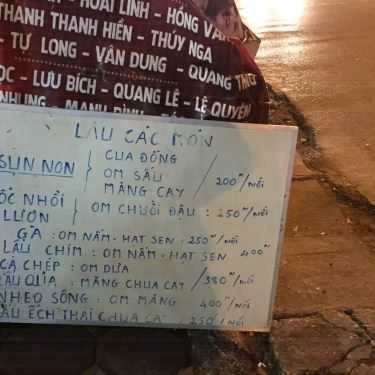 HOÀI LINH - HỒNG VÂN
THANH THANH HIỀN - THÚY NGA
TỰ LONG - VÂN DUNG - QUANG
ỌC - LƯU BÍCH - QUANG LÊ - LỆ QUYÊN
NHUNG - MẠNH ĐÌNH
LẨU CÁC MÓN
SỤN NON
CUA ĐỒNG
OM SẤU
MĂNG CAY / 200K/NỒI
ỐC NHỒI
LƯƠN
OM CHUỐI ĐẬU : 250K/NỒI
GÀ : OM NẤM - HẠT SEN : 250K/NỒI
LẨU CHIM : OM NẤM - HẠT SEN 400K
CÁ CHÉP : OM DƯA
MĂNG CHUA CAY / 380K/NỒI
NHEO SÔNG : OM MĂNG 400K/NỒI
ẨU ẾCH THÁI CHUA CAY 250K/NỒI